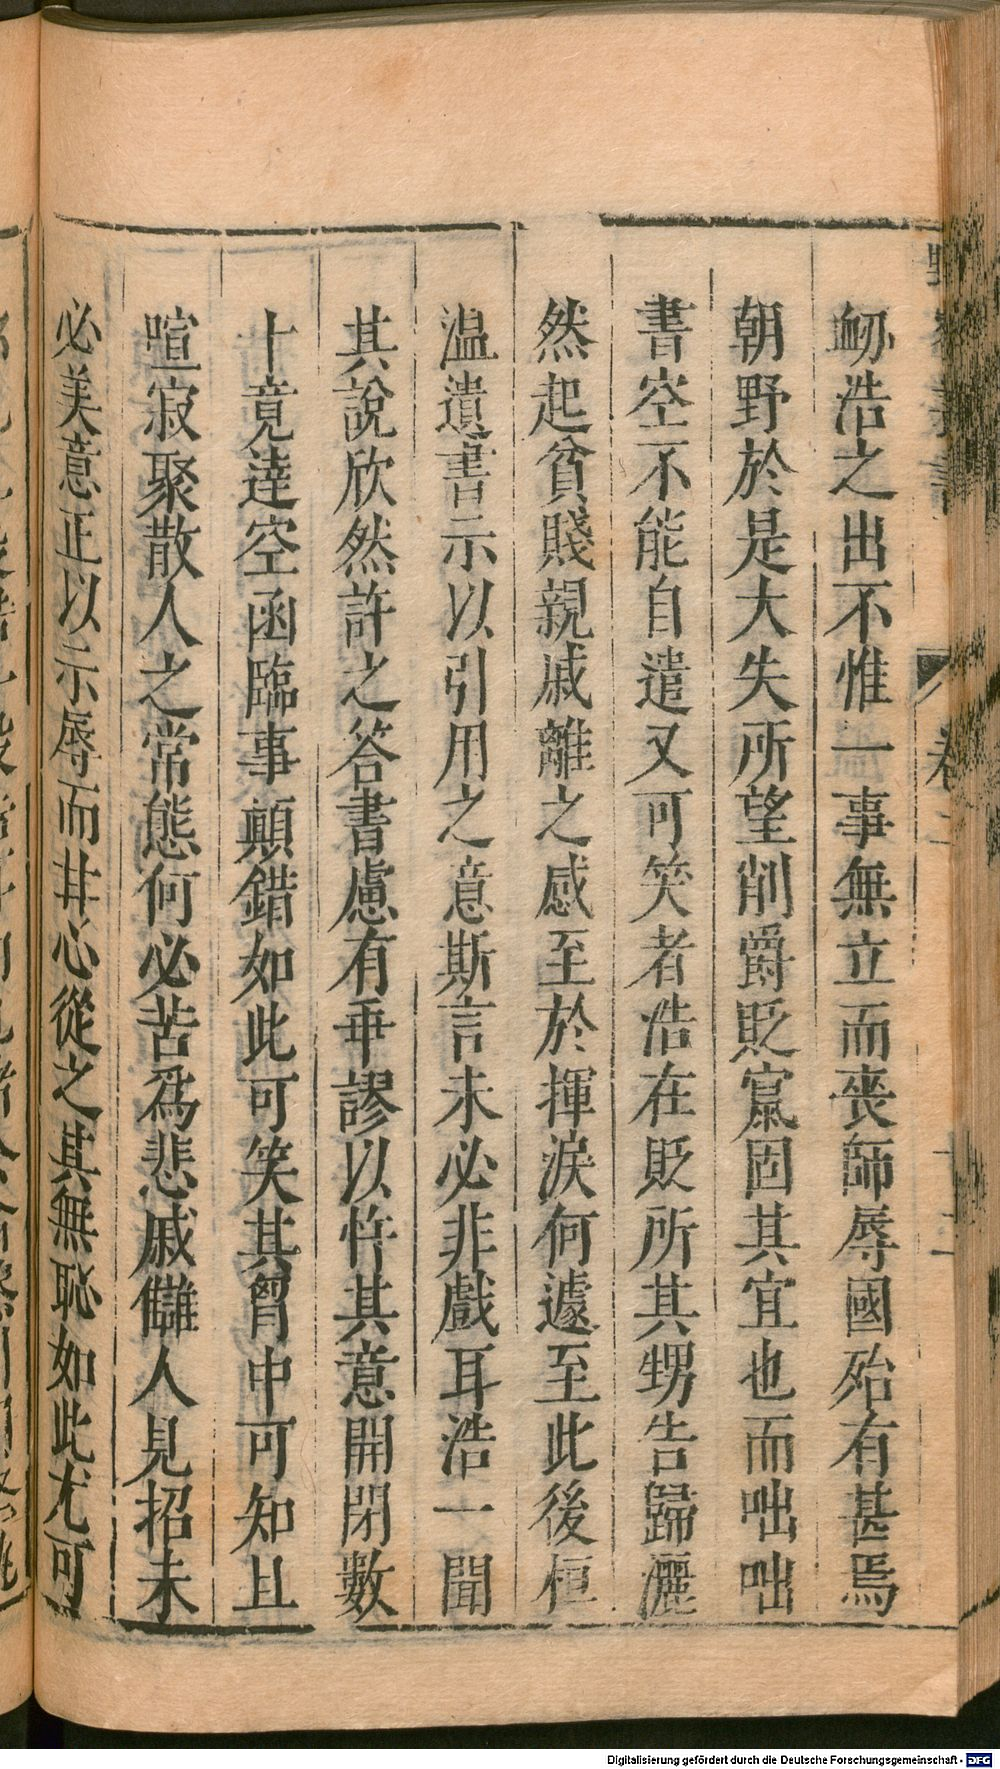 衂浩之出不惟一事無立而喪師辱國殆有甚焉
朝野於是大失所望削爵貶竄固其宜也而咄咄
書空不能自遣又可笑者浩在貶所其甥告歸灑
然起貧賤親戚離之感至於揮淚何遽至此後桓
温遺書示以引用之意斯言未必非戲耳浩一聞
其說欣然許之答書慮有乖謬以忤其意開閉數
十竟達空函臨事顛錯如此可笑其胷中可知且
喧寂聚散人之常態何必苦爲悲戚讎人見招未
必美意正以示辱而甘心從之其無恥如此尤可
Digitalisierung gefördert durch die Deutsche Forschungsgemeinschaft - DFG